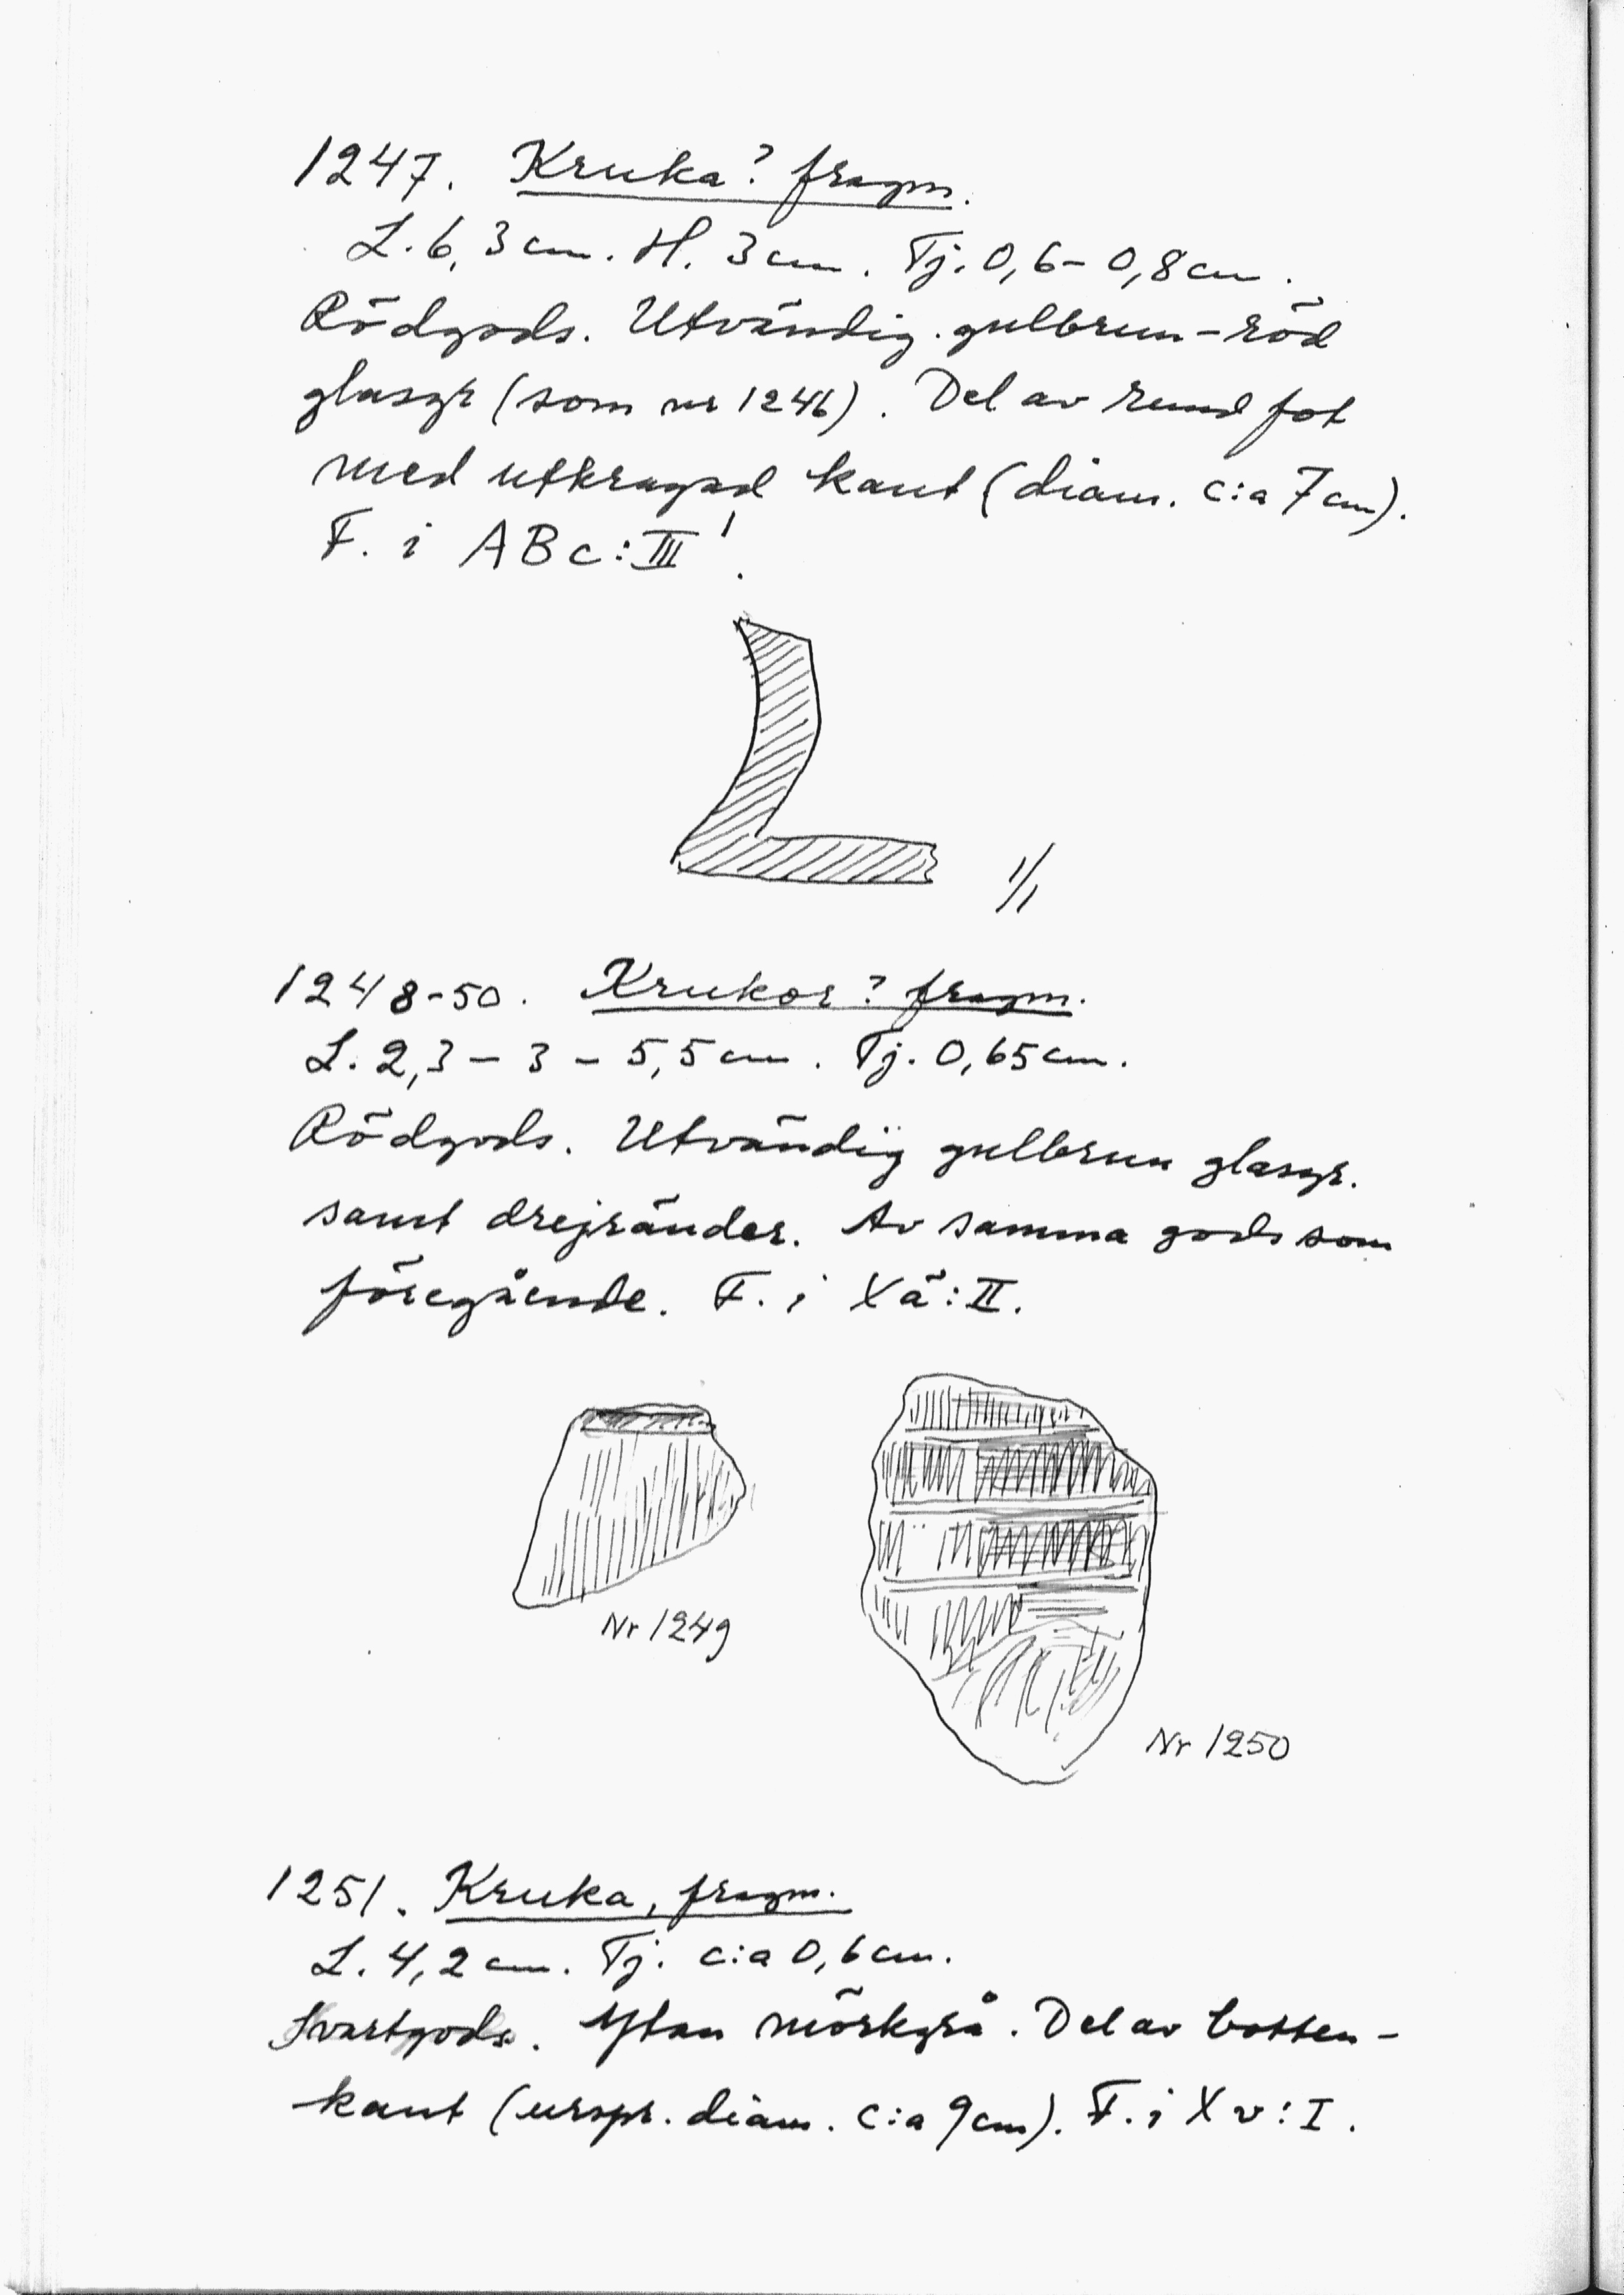 1247. Kruka? fragm.
L. 6,3 cm. H. 3 cm. Tj. 0,6-0,8 cm.
Rödgods. Utvändig. gulbrun-röd
glasyr (som nr 1246). Del av rund fot
med utkragad kant (diam. c:a 7 cm).
F. i ABc:III.
1/1
1248-50. Krukor? fragm.
L. 2,3 - 3 - 5,5 cm. Tj. 0,65 cm.
Rödgods. Utvändig gulbrun glasyr.
samt drejränder. Av samma gods som
föregående. F. i Xä:II.
Nr 1249
Nr 1250
1251. Kruka, fragm.
L. 4,2 cm. Tj. c:a 0,6 cm.
Svartgods. Ytan mörkgrå. Del av botten-
kant (urspr. diam. c:a 9 cm). F. i Xv:I.